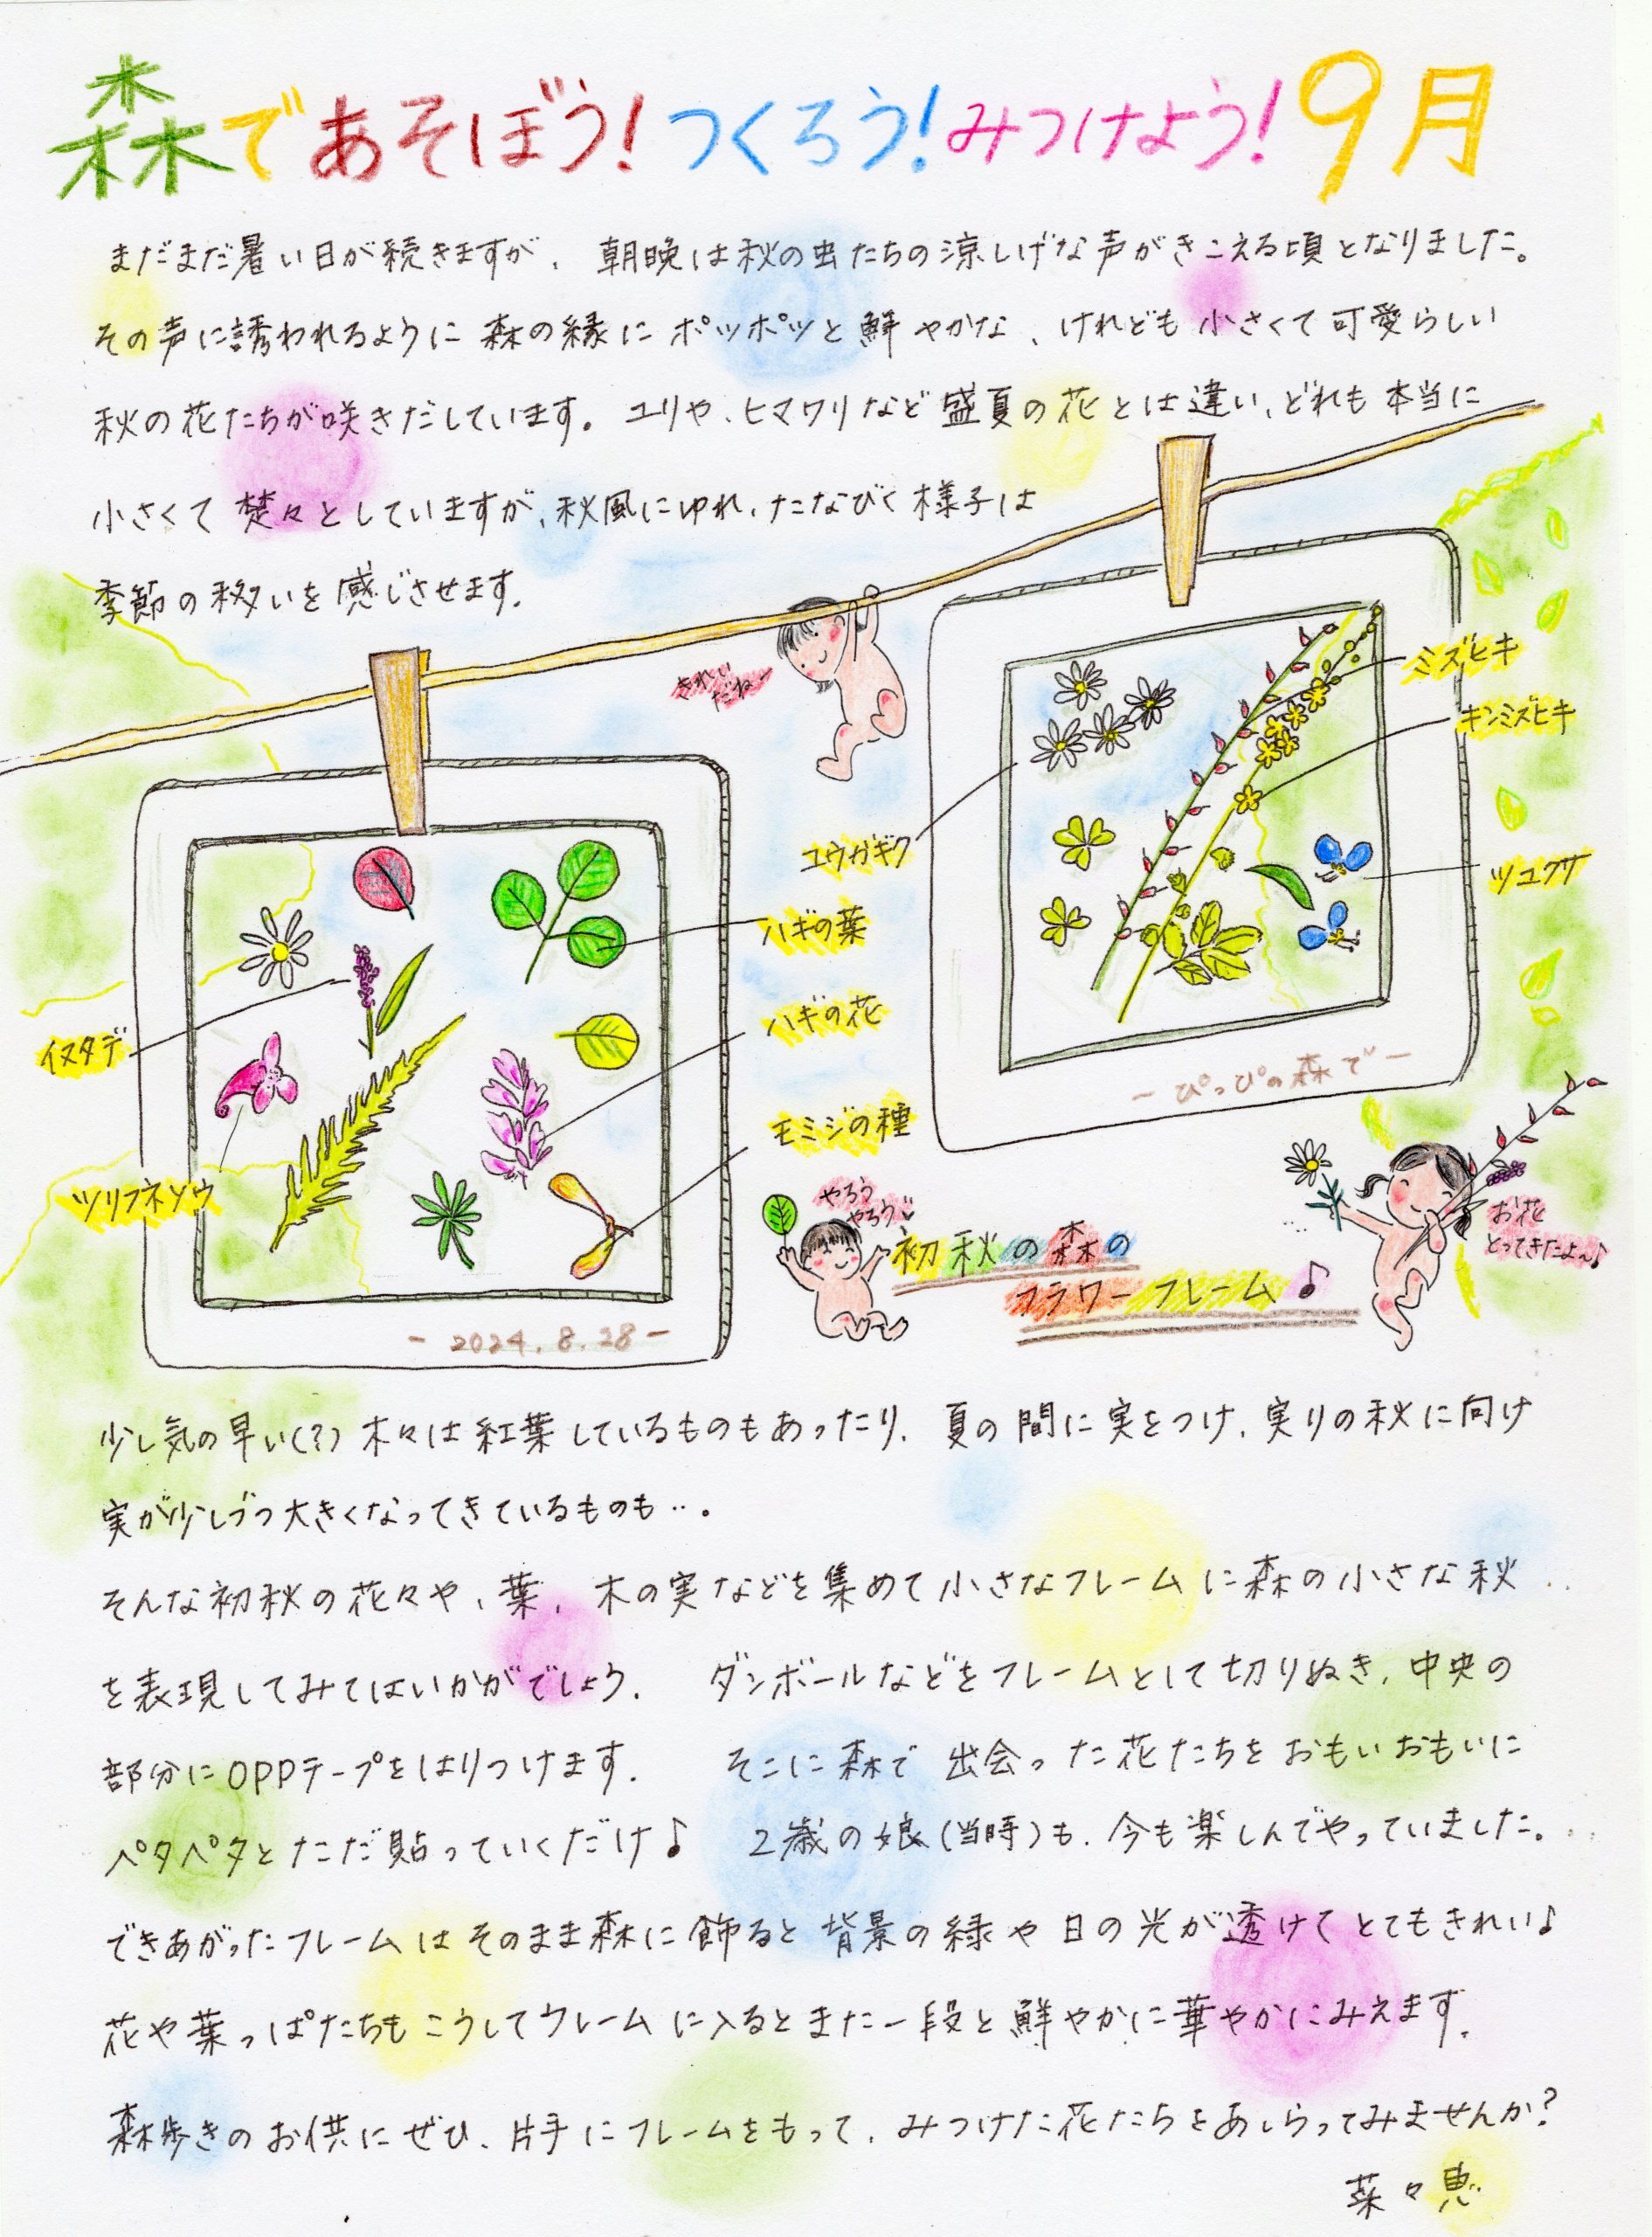 森であそぼう！つくろう！みつけよう！9月
まだまだ暑い日が続きますが、朝晩は秋の虫たちの涼しげな声がきこえる頃となりました。
その声に誘われるように森の縁にポッポッと鮮やかな、けれども小さくて可愛らしい
秋の花たちが咲きだしています。ユリや、ヒマワリなど盛夏の花とは違い、どれも本当に
小さくて楚々としていますが、秋風にゆれ、たなびく様子は
季節の移いを感じさせます。
きれい
だねー
ミズヒキ
キンミズヒキ
ユウガギク
ツユクサ
ーぴっぴの森でー
ハギの葉
ハギの花
イヌタデ
モミジの種
ツリフネソウ
ー2024.8.28ー
やろう
やろう♡
初秋の森の
フラワーフレーム♪
お花
とってきたよ〜♪
少し気の早い(?)木々は紅葉しているものもあったり、夏の間に実をつけ、実りの秋に向け
実が少しづつ大きくなってきているものも…。
そんな初秋の花々や、葉、木の実などを集めて小さなフレームに森の小さな秋‥
を表現してみてはいかがでしょう。 ダンボールなどをフレームとして切りぬき、中央の
部分にOPPテープをはりつけます。 そこに森で出会った花たちをおもいおもいに
ペタペタとただ貼っていくだけ♪ 2歳の娘(当時)も、今も楽しんでやっていました。‥
できあがったフレームはそのまま森に飾ると背景の緑や日の光が透けてとてもきれい♪
花や葉っぱたちもこうしてフレームに入るとまた一段と鮮やかに華やかにみえます。
森歩きのお供にぜひ、片手にフレームをもって、みつけた花たちをあしらってみませんか？
菜々恵